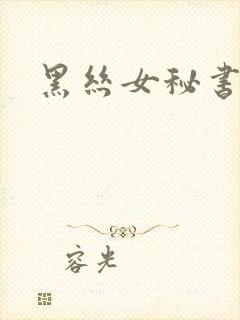 黑丝女秘书
容光